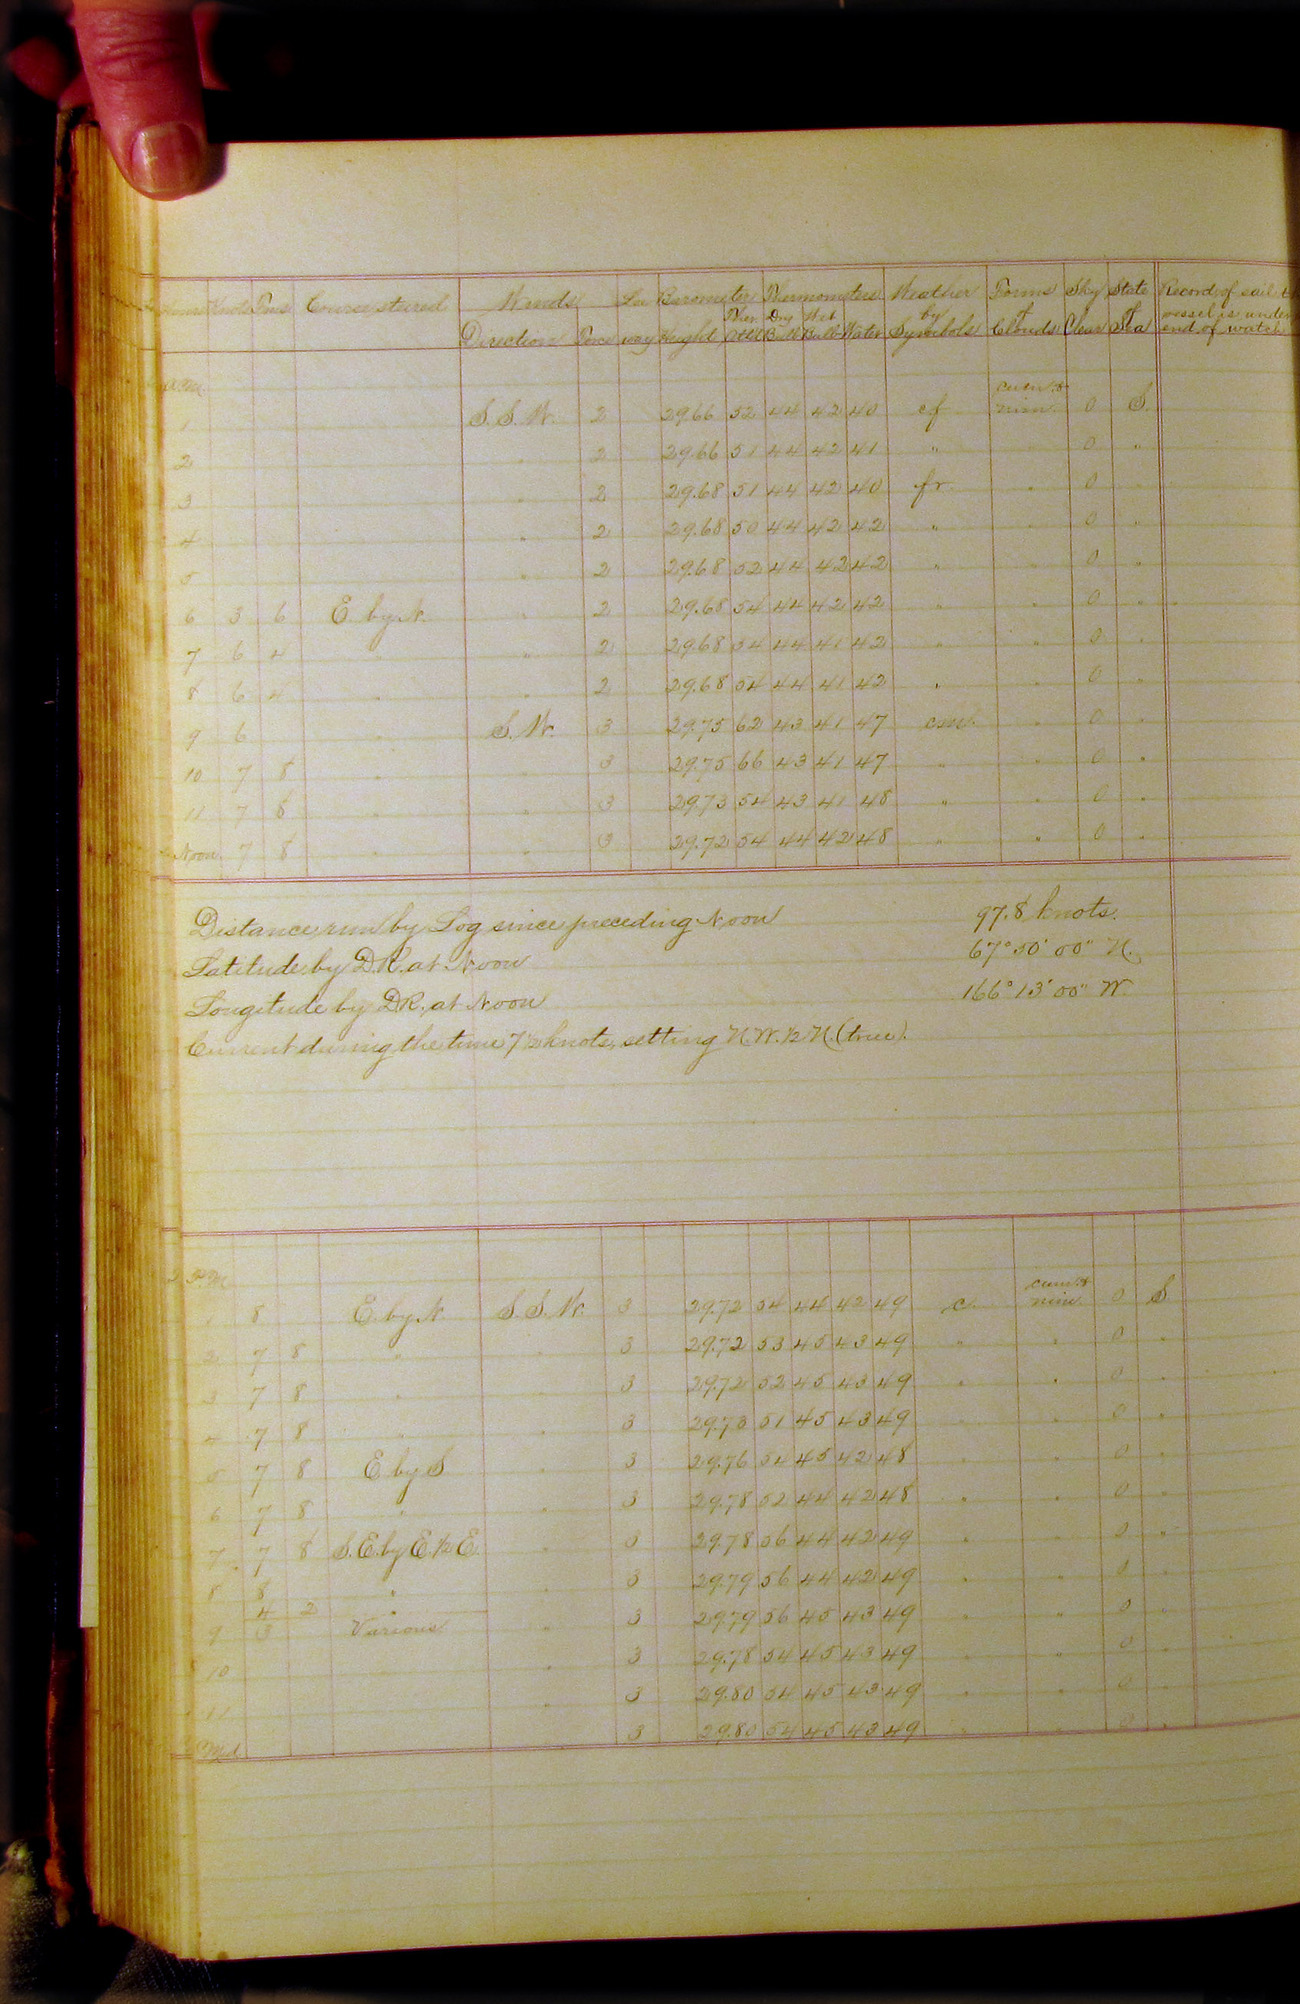 Hours Knots Tenths Course steered Winds Lee Barometer Thermometers Weather Forms Sky State Record of sail
Direction Force way Height Ther. Att'd Dry Bulb Wet Bulb Water by Symbols of Clouds Clear of Sea vessel is under end of watch
A.M.
1 S.S.W. 2 29.66 52 44 42 40 cf cum. & nim. 0 S.
2 " 2 29.66 51 44 42 41 " 0 "
3 " 2 29.68 51 44 42 40 fr. " 0 "
4 " 2 29.68 50 44 42 42 " " 0 "
5 " 2 29.68 52 44 42 42 " " 0 "
6 3 6 E. by N. " 2 29.68 54 44 42 42 " " 0 "
7 6 4 " " 2 29.68 54 44 41 42 " " 0 "
8 6 4 " " 2 29.68 54 44 41 42 " " 0 "
9 6 " S.W. 3 29.75 62 43 41 47 " 0 "
10 7 8 " " 3 29.75 66 43 41 47 " " 0 "
11 7 8 " " 3 29.73 54 43 41 48 " " 0 "
Noon 7 8 " " 3 29.72 54 44 42 48 " " 0 "
Distance run by Log since preceding Noon 97.8 knots.
Latitude by D.R. at Noon 67° 50' 00" N.
Longitude by D.R. at Noon 166° 13' 00" W.
Current during the time 7 1/2 knots, setting N.W. 1/2 N. (true).
P.M.
1 8 E. by N. S.S.W. 3 29.72 54 44 42 49 c. cum. & nim. 0 S
2 7 8 " " 3 29.72 53 45 43 49 " " 0 "
3 7 8 " " 3 29.72 52 45 43 49 " " 0 "
4 7 8 " " 3 29.73 51 45 43 49 " " 0 "
5 7 8 E. by S " 3 29.76 54 45 42 48 " " 0 "
6 7 8 " " 3 29.78 52 44 42 48 " " 0 "
7 7 8 S.E. by E. 1/2 E. " 3 29.78 56 44 42 49 " " 0 "
8 8 " " 3 29.79 56 44 42 49 " " 0 "
4 2 "
9 3 Various " 3 29.79 56 45 43 49 " " 0 "
10 " 3 29.78 54 45 43 49 " " 0 "
11 " 3 29.80 54 45 43 49 " " 0 "
Mid. 3 29.80 54 45 43 49 " " 0 "